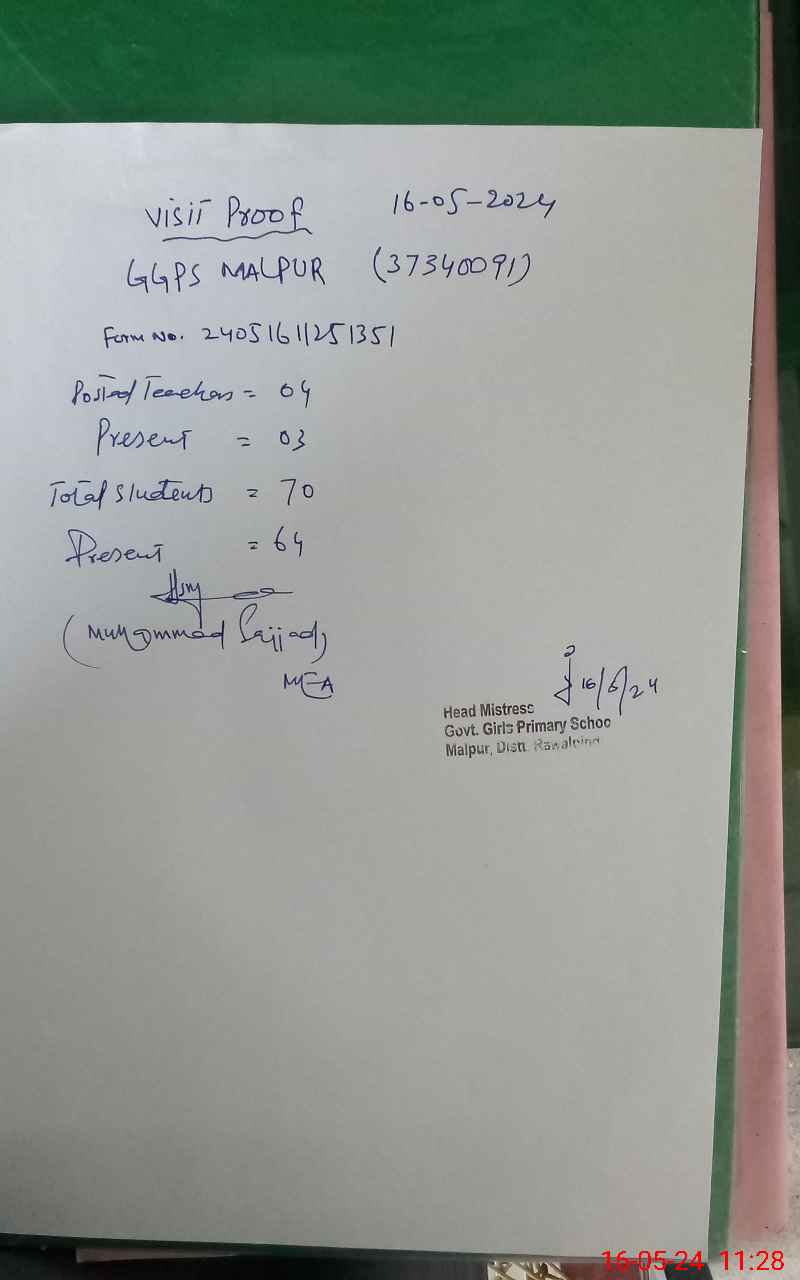 Visit Proof 16-05-2024
GGPS MALPUR (37340091)
Form No. 24051611251351
Posted Teachers = 04
Present = 03
Total Students = 70
Present = 64
(Muhammad Sajjad)
MEA
16/5/24
Head Mistress
Govt. Girls Primary Schoo
Malpur, Distt. Rawalpin
16-05-24 11:28